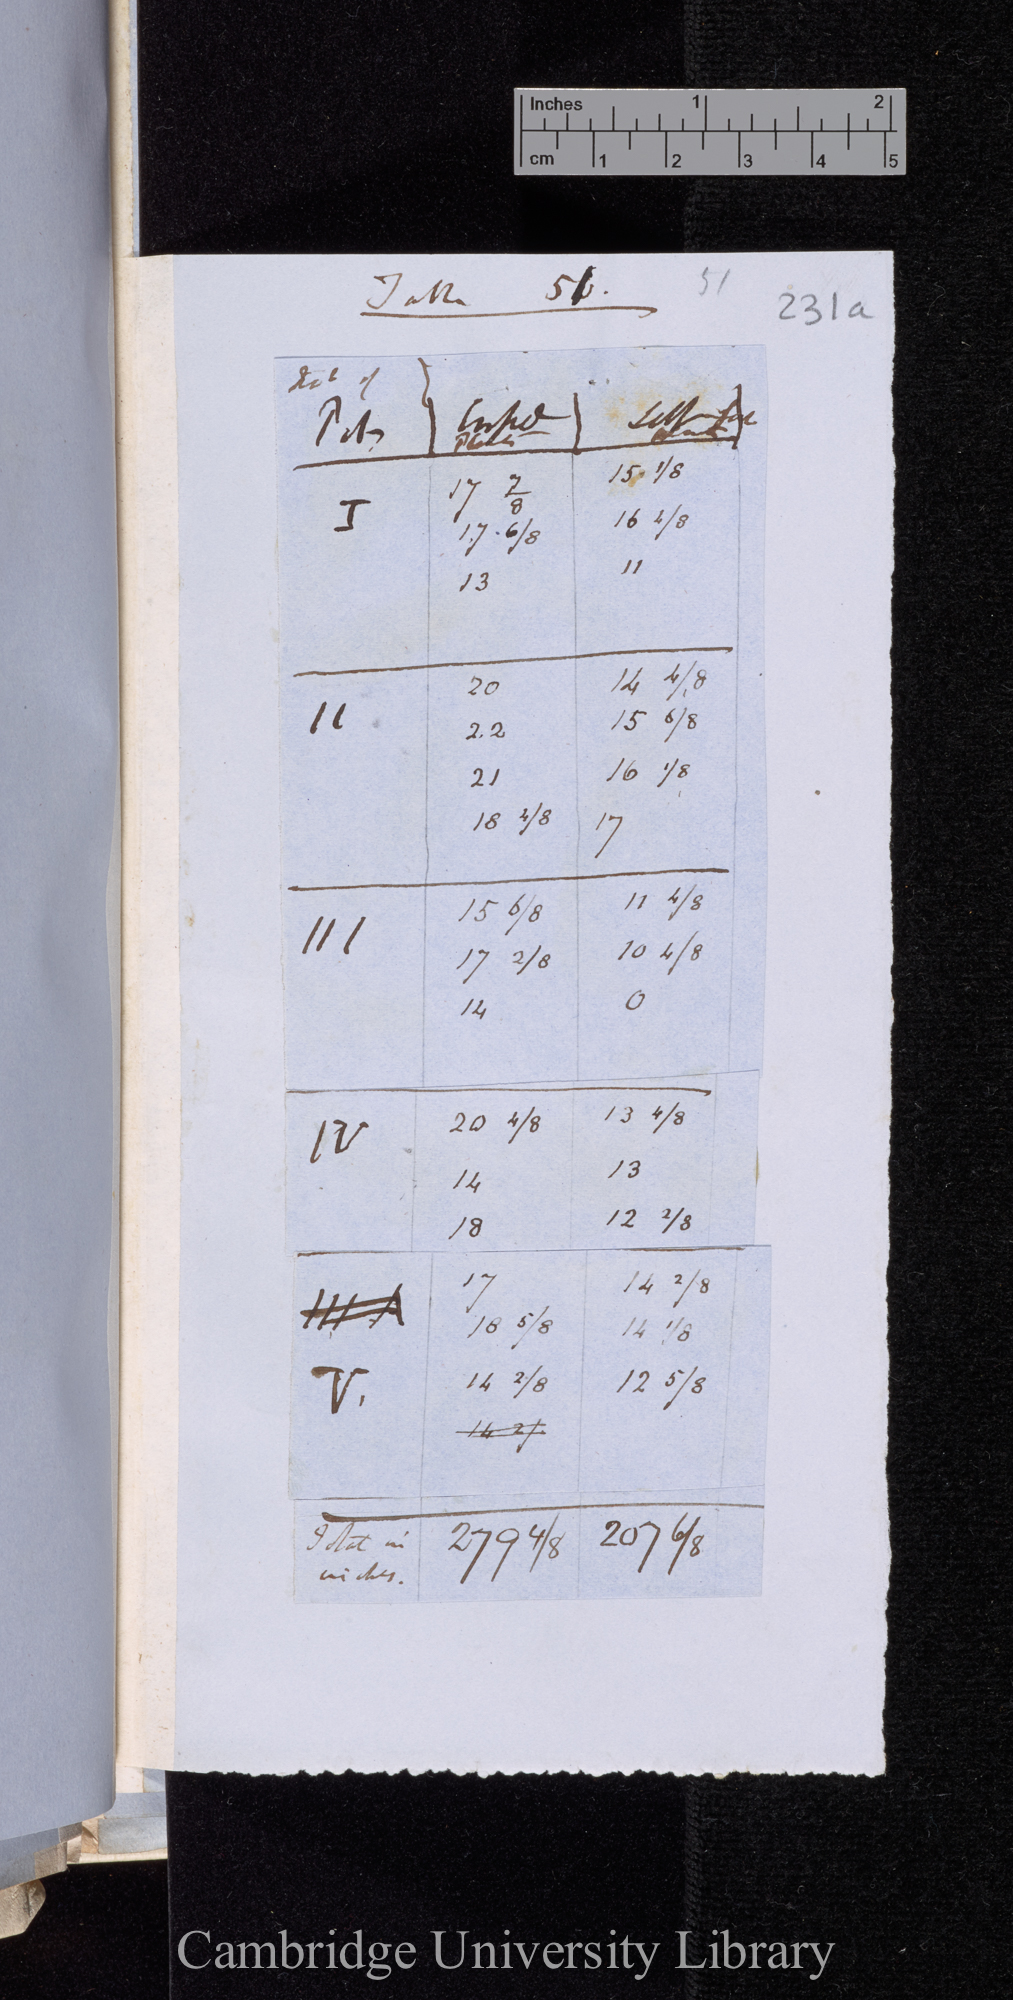 Inches 1 2
cm 1 2 3 4 5
Table 51. 51 231a
No. of
Pots Crossed Plants Self-fert. Plants
I 17 7/8 15 1/8
17 6/8 16 4/8
13 11
II 20 14 4/8
22 15 6/8
21 16 1/8
18 4/8 17
III 15 6/8 11 4/8
17 2/8 10 4/8
14 0
IV 20 4/8 13 4/8
14 13
18 12 2/8
17 14 2/8
18 5/8 14 1/8
V. 14 2/8 12 5/8
14 2/
Total in 279 4/8 207 6/8
inches.
Cambridge University Library